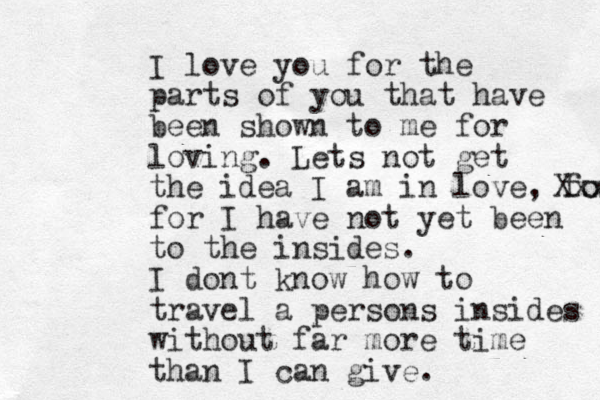 I love you for the
parts of you that have
been shown to me for
loving. Lets not get
the idea I am in love,
for I have not yet been
to the insides.
I dont know how to
travel a persons insides
without far more time
than I can give.